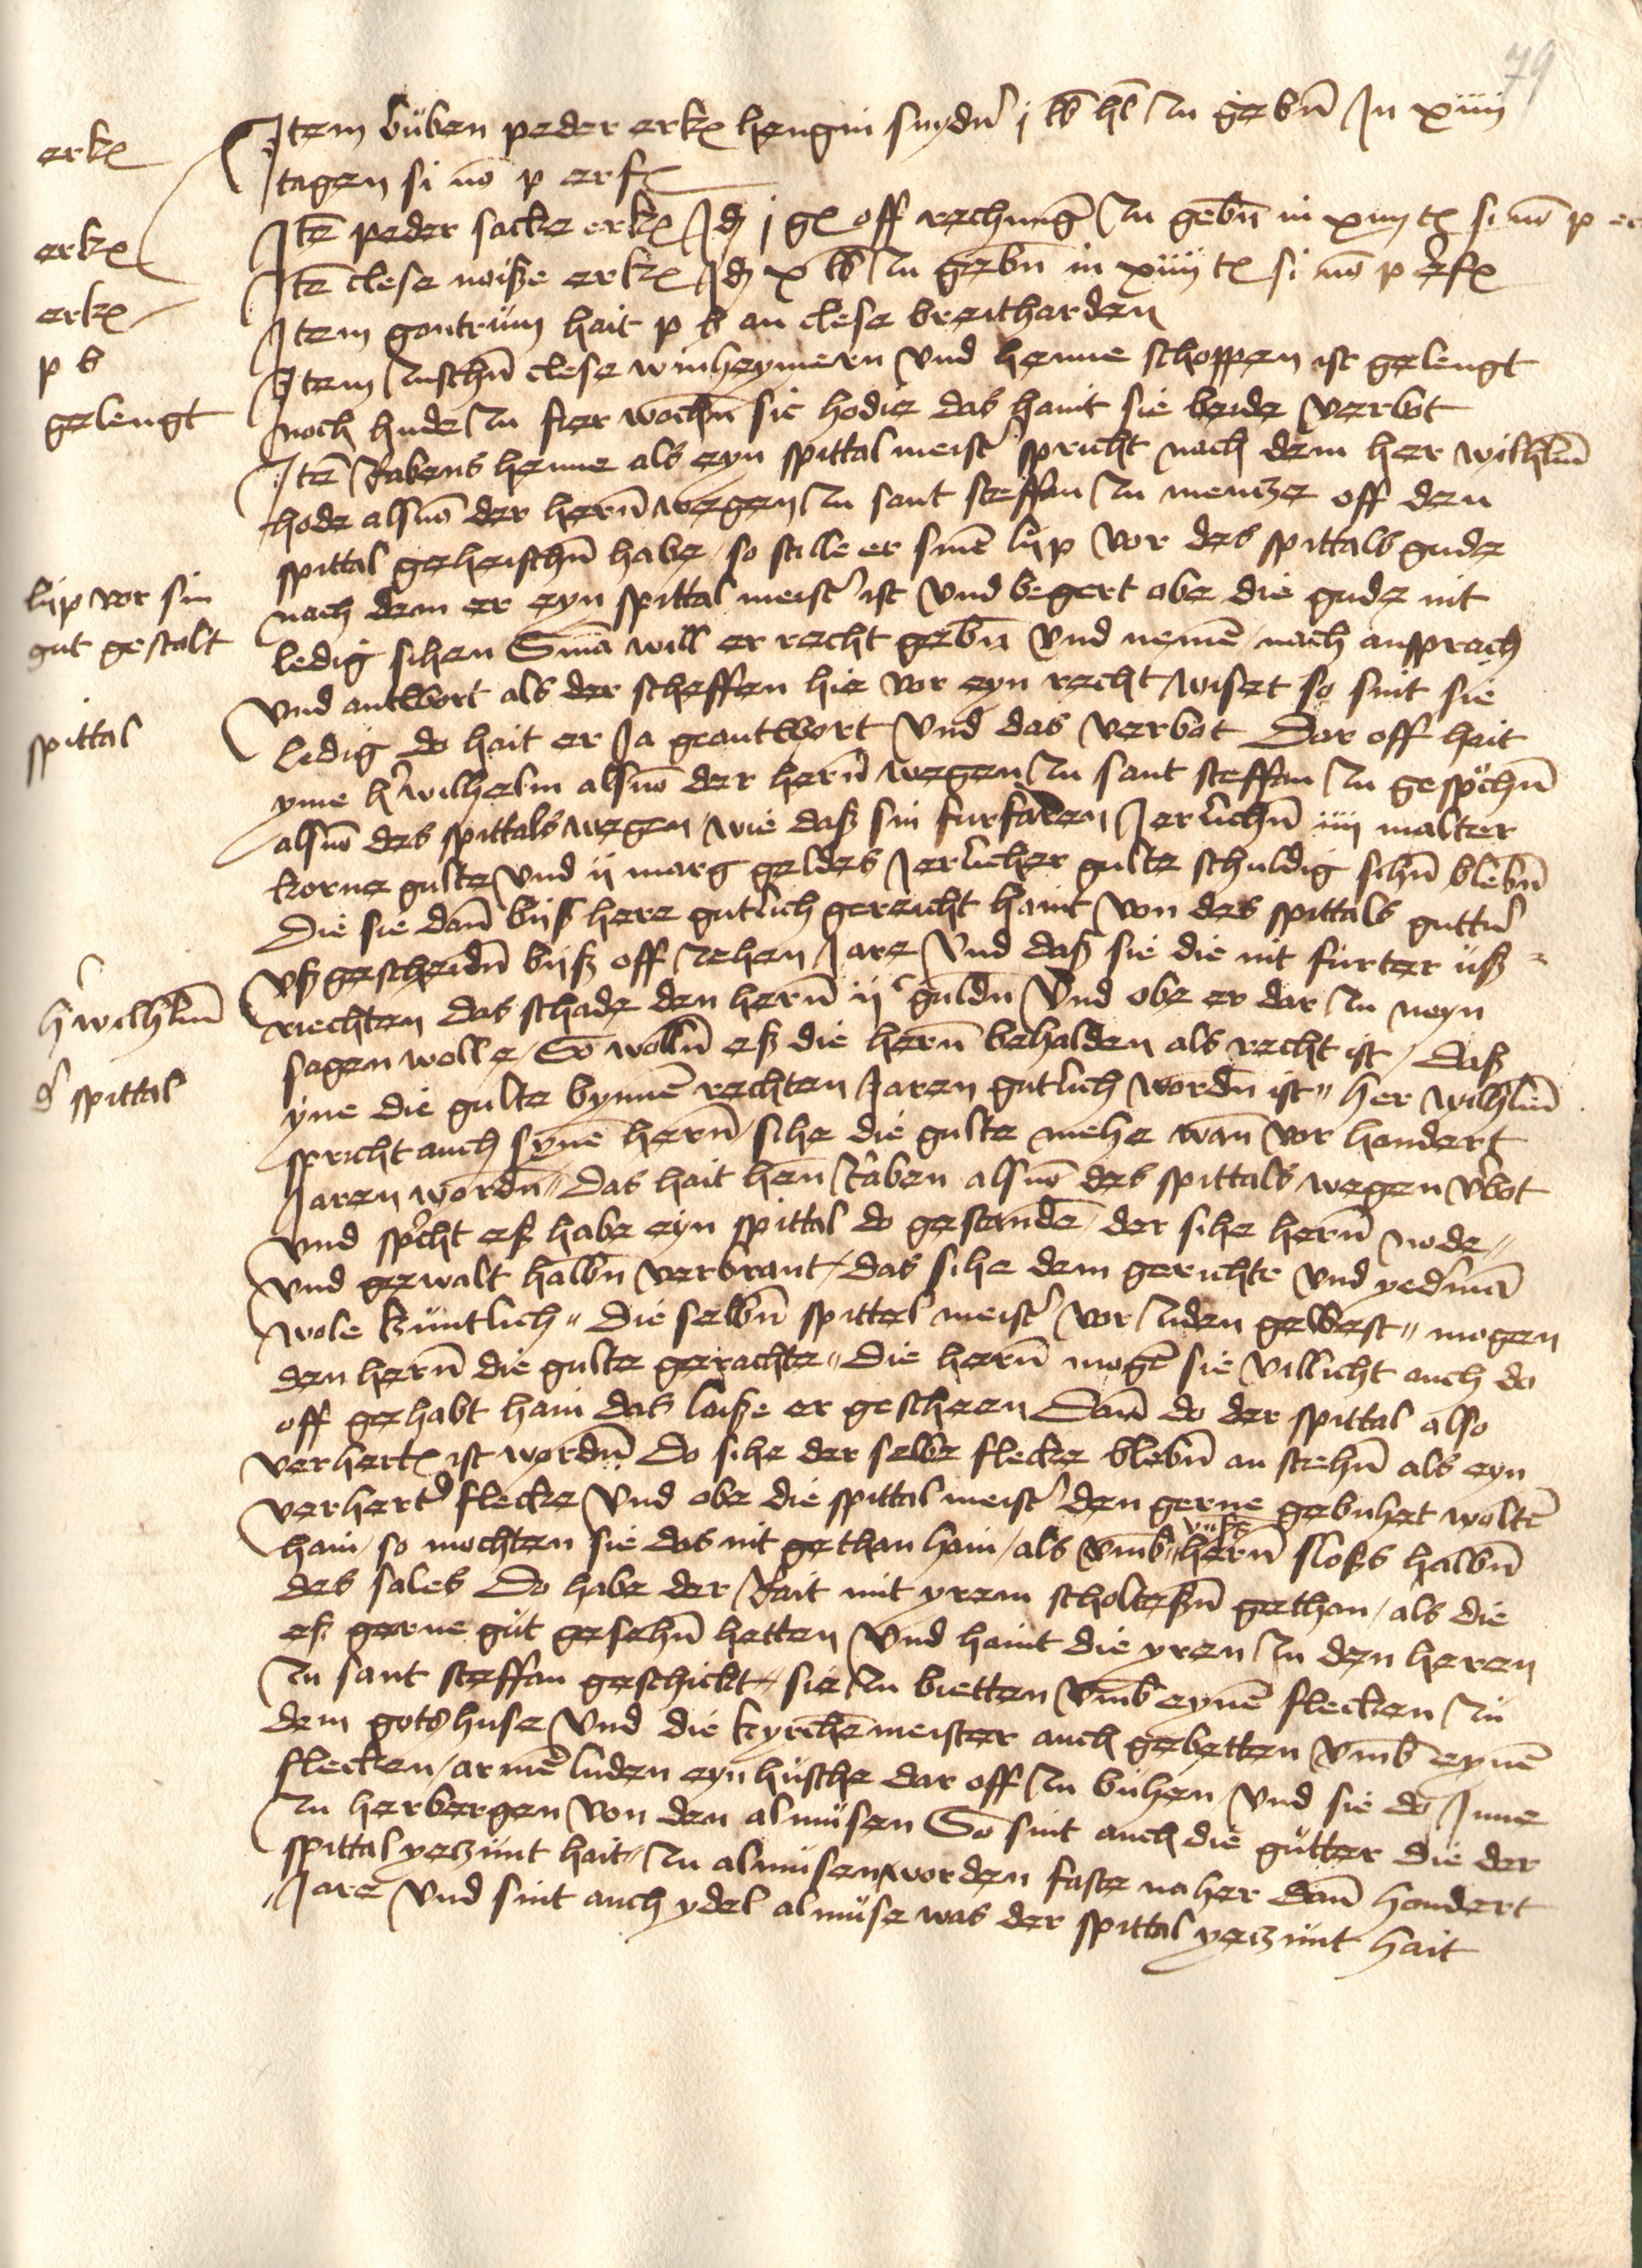 79
erkᷤ
Item buben peder erkᷤ hengin snyder j lb hl zu gebn̄ In xiiij
tagen si nō p erfᷤ
erkᷤ
Itē peder sacke erkᷤ Id j gᷤ off rechnung̅ zu gebn̄ in xiiij tᷤ si nō p er
erkᷤ
Itē clese noisze erkᷤ Id x lb zu gebn̄ in xiiij tᷤ si nō p erfᷤ
p b
Item gontrum hait p b an clese breitharden
gelengt
Item zuschn̄ clese winheymern vnd henne schoppen ist gelengt
noch hude zu fier wochn̄ sic hodie das haint sie beide verbot
Itē Rabens henne als eyn spittalmeister spricht nach dem her wilhlm̄
hode alsnō der hern̄ wegen zu sant steffan zu mentze off den
spittal geheischn̄ habe / so stille er sinē lijp vor des spittals gude
lijp vor sin
gut gestalt
nach dem er eyn spittal meister ist vnd begert obe die gude nit
ledig sihen Sinā will er recht gebn̄ vnd nemē / nach ansprach
vnd antwort als der scheffen hie vor eyn recht wiset so sint sie
spittal
ledig do hait er Ja geantwort vnd das verbot Dar off hait
yme her wilhelm alsnō der hern̄ wegen zu sant steffan zu gesprochn̄
alsnō des spittals wegen / wie dasz sin furfaren Jerlichn̄ iiij malter
korne gulte vnd ij marg geldes Jerlicher gulte schuldig sihn̄ blebn̄
Die sie dan̄ bijsz here gutlich gereicht haint von des spittals gutter
vsz gescheidn̄ bijsz off zehen Jare vnd dasz sie die nit furter usz=
her wilhlm̄
riechten das schade den hern̄ ijᶜ guldn̄ vnd obe er dar zu neyn
sagen wolle / So wolln̄ esz die hern̄ behalden als recht ist / dasz
d' spittal
yne die gulte bynnē rechten Jaren gutlich wordn̄ ist " her wilhlm̄
spricht auch synē hern̄ sihe die gulte mehe wan̄ vor hondert
Jaren wordn̄ " Das hait hen̄ Raben alsnō des spittals wegen v'bot
vnd spricht esz habe eyn spittal do gestandē / der sihe hern̄ node "
vnd gewalt halbn̄ verbrant / das sihe dem gerichte vnd yedermā
wole kuntlich " Die selbn̄ spittel meister vor zuden gewest " mogen
den hern̄ die gulte gerachte " Die hern̄ mogē sie villicht auch do
off gehabt hain das laisze er gescheen Dan̄ do der spittal also
verhertᷤ ist wordn̄ Do sihe der selbe flecke blebn̄ an stehn̄ als eyn
verherter flecke vnd obe die spittalmeister den gerne gebuhet woltē
hain / so mochten sie das nit gethan hain / als vmb vnsers hern̄ slosz halbn̄
des sales Do habe der Rait mit yrem scholteszn̄ gethan / als die
esz gerne gut gesehn̄ hetten vnd haint die yren zu den heren
zu sant steffan geschickt / sie zu bietten vmb eynē flecken zu
dem gotshuse vnd die kyrchēmeister auch gebetten vmb eynē
flecken / armē luden eyn husche dar off zu buhen vnd sie do Jnne
zu herbergen von den almusen So sint auch die gutter die der
spittal yetzunt hait / zu almusen worden faste naher dan̄ hondert
Jare vnd sint auch ydel almuse was der spittal yetzunt hait